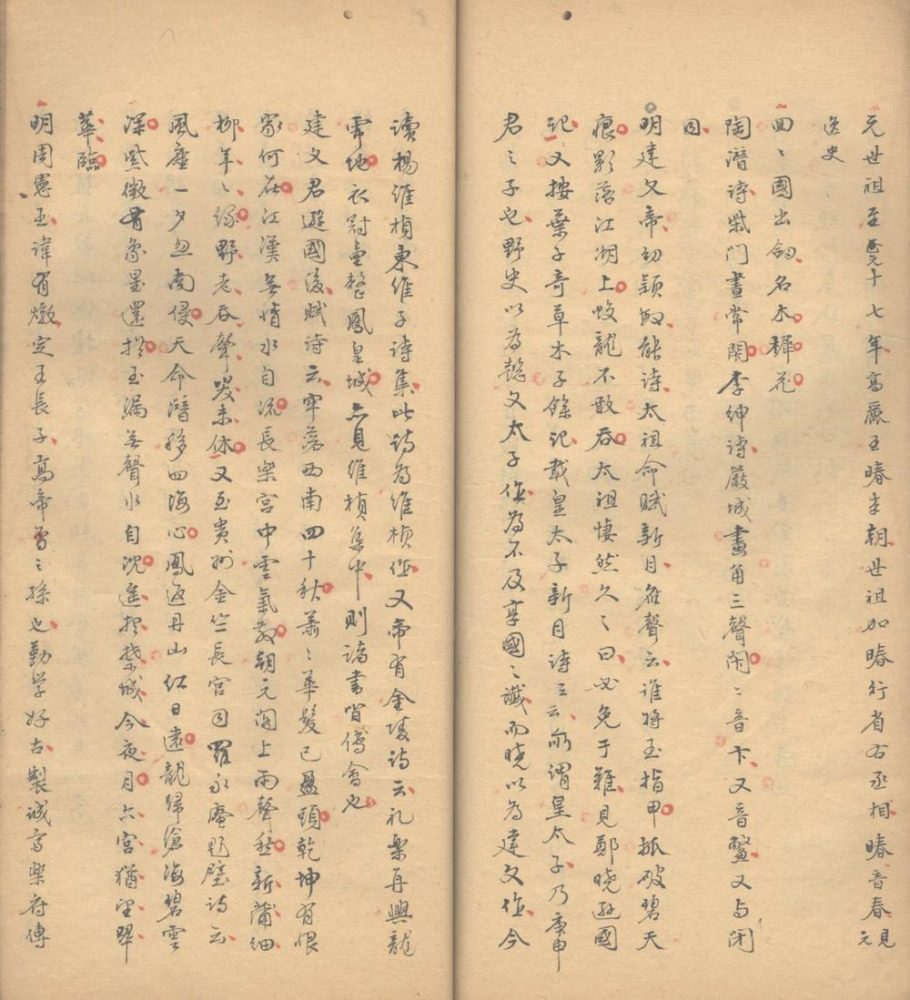 元世祖至元十七年高麗王賰來朝世祖加賰行省右丞相賰音春見元
迭史
回〻國出劒名木樨花
陶潛詩柴門晝常閉李紳詩嚴城畫角三聲閉〻音卞又音鳖又与闭
同
明建文帝幼穎敏能詩太祖命賦新月应聲云誰将玉指甲抓破碧天
痕影落江湖上蛟龍不敢吞太祖悽然久〻曰必免于難見鄭曉遜國
記又按葉子奇草木子餘記載皇太子新月詩三云所謂皇太子乃庚申
君之子也野史以為懿文太子作為不及享國之讖而曉以為建文作今
讀楊維楨東維子詩集此詩為維楨作又帝有金陵詩云礼樂再興龍
虎地衣冠重整鳳皇城亦見維楨集中則諸書皆傅會也
建文君遜國後賦詩云牢落西南四十秋萧〻華髮已盈頭乾坤有恨
家何在江漢無情水自流長樂宮中雲氣散朝元閣上雨聲愁新蒲細
柳年〻緑野老吞聲哭未休又至貴州金竺長官司羅永庵題壁詩云
風塵一夕忽南侵天命潛移四海心鳳返丹山红日遠龍歸滄海碧雲
深紫微有象星還拱玉漏無聲水自沉遙想禁城今夜月六宮猶望翠
華臨
明周憲王諱有燉定王長子高帝曾〻孫也勤学好古製誠齋樂府傳